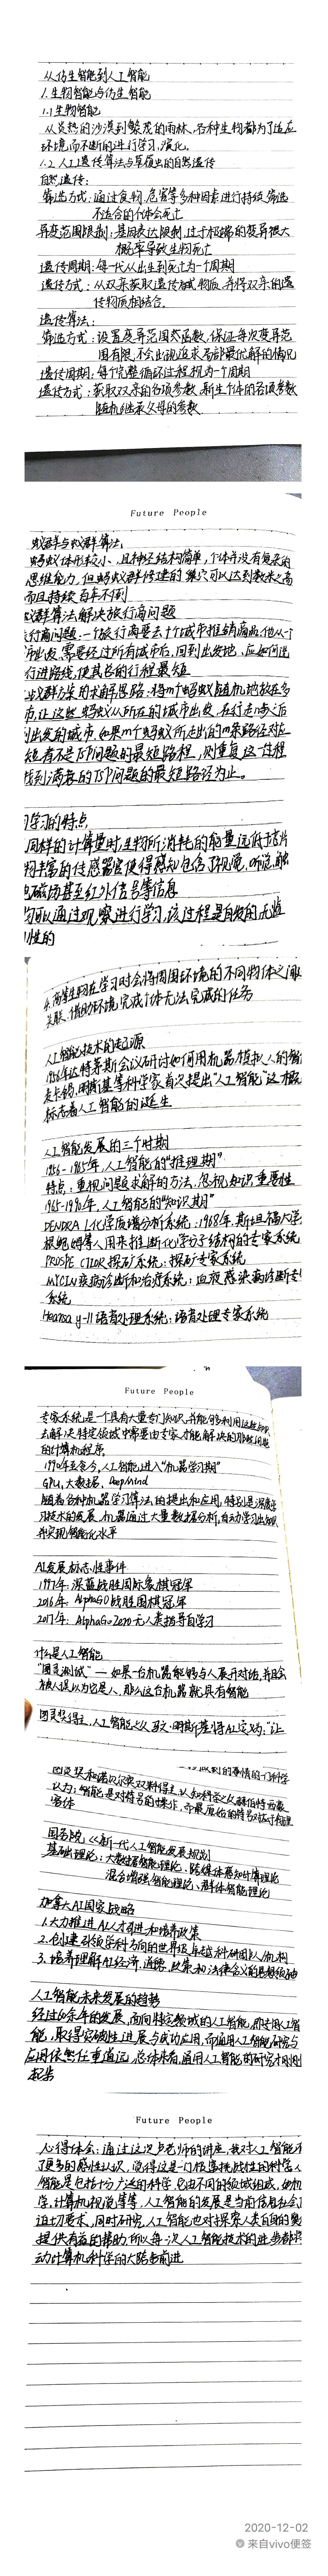 从仿生智能到人工智能
1.生物智能与仿生智能
1.1生物智能
从炎热的沙漠到繁茂的雨林,各种生物都为了适应
环境而不断的进行学习,演化。
1.2 人工遗传算法与草原上的自然遗传
自然遗传:
筛选方式:通过食物,危害等多种因素进行持续筛选
不适合的个体会死亡
异变范围限制:基因表达限制,过于极端的变异很大
概率导致生物死亡
遗传周期:每一代从出生到死亡为一个周期
遗传方式:从双亲获取遗传物质,并将双亲的遗
传物质相结合.
遗传算法:
筛选方式:设置变异范围或函数,保证每次变异范
围有限,不会出现追求局部最优解的情况
遗传周期:每个完整循环过程视为一个周期
遗传方式:获取双亲的各项参数,新生个体的各项参数
随机继承父母的参数
Future People
蚁群与蚁群算法:
蚂蚁体形较小,且神经结构简单,个体并没有复杂的
思维能力,但蚂蚁群修建的巢穴可以达到数米之高
而且持续百年不倒
蚁群算法解决旅行商问题
旅行商问题:一个旅行商要去n个城市推销商品,他从一个
市出发,需要经过所有城市后,回到出发地,应如何选
行进路线,使其总的行程最短
蚁群算法的求解思路:将m个蚂蚁随机地放在多
市,让这些蚂蚁从所在的城市出发,
到出发的城市,如果m个蚂蚁所走出的m条路径对应
短者不是TSP问题的最短路程,则重复这一过程
找到满意的TSP问题的最短路径为止。
学习的特点,
同样的计算量时,生物所消耗的能量远低于芯片
物丰富的传感器官使得感知包含了视觉,听觉,触
电磁场甚至红外信号等信息
均可以通过观察进行学习,该过程是自发的无监
性的
4.高等生物在学习时会将周围环境的不同物体之间
关联,借助环境完成个体无法完成的任务
人工智能技术的起源
1956年达特茅斯会议研讨如何用机器模拟人的智
麦卡锡,明斯基等科学家首次提出"人工智能"这个概
标志着人工智能的诞生
人工智能发展的三个时期
1956-1965年,人工智能的"推理期"
特点:重视问题求解的方法,忽视知识重要性
1965-1990年,人工智能的"知识期"
DENDRAL化学质谱分析系统:1968年,斯坦福大学
根鲍姆等人用来推断化学分子结构的专家系统
PROSPECTIOR探矿系统:探矿专家系统
MYCIN疾病诊断和治疗系统:血液感染病诊断专
系统
Hearsay-II语音处理系统:语音处理专家系统
Future People
专家系统是一个具有大量专门知识,并能够利用这些知识
去解决特定领域中需要由专家才能解决的那些问题
的计算机程序
1990年至今,人工智能进入"机器学习期"
GPU,大数据,DeepMind
随着各种机器学习算法的提出和应用,特别是深度学
习技术的发展,机器通过大量数据分析,自动学习出知识
并实现智能化水平
AI发展标志性事件
1997年:深蓝战胜国际象棋冠军
2016年:AlphaGO战胜围棋冠军
2017年:AlphaGo Zero无人类指导自学习
什么是人工智能
"图灵测试"——如果一台机器能够与人展开对话,并且会
被人误以为它是人,那么这台机器就具有智能
图灵奖得主,人工智能之父马文·明斯基将AI定义为:"让
的事情的一门科学
图灵奖和诺贝尔奖双料得主,认知科学之父赫伯特西蒙
认为:智能是对符号的操作,而最原始的符号对应于物理
客体
国务院《新一代人工智能发展规划》
基础理论:大数据智能理论、跨媒体感知计算理论
混合增强智能理论、群体智能理论
加拿大AI国家战略
1.大力推进AI人才引进和培养政策
2.创建引领学科方向的世界级卓越科研团队/机构
3.培养理解AI经济,道德,政策和法律含义的思想领袖
人工智能未来发展的趋势
经过60余年的发展,面向特定领域的人工智能,即专用人工智
能,取得突破性进展与成功应用,而通用人工智能研究与
应用依然任重道远,总体来看,通用人工智能的研究才刚刚
起步
Future People
心得体会:通过这次点老师的讲座,我对人工智能有
了更多的感性认识,觉得这是一门极富挑战性的科学,人
智能是包括十分广泛的科学,它由不同的领域组成,如机
学,计算机视觉等等,人工智能的发展是当前信息社会
迫切要求,同时研究人工智能也对探索人类自身的奥
提供有益的帮助,所以每一次人工智能技术的进步都将
动计算机科学的大踏步前进
2020-12-02
来自vivo便签